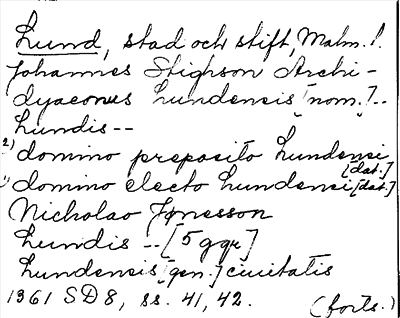 Lund, stad och stift, Malm. l.
Johannes Stighson Archi-
dyaconus Lundensis [nom.] --
Lundis --
2) domino preposito Lundensi [dat.]
1) domino electo Lundensi [dat.]
Nicholao Jonesson
Lundis -- [5 ggr]
Lundensis [gen.] ciuitatis
1361 SD 8, ss. 41, 42. (forts.)